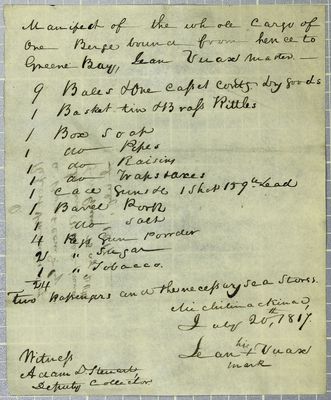 Manifest of the whole Cargo of
One Barge bound from hence to
Greene Bay, Jean Vuax Master. —
9 Bales & One Casset contg Dry goods
1 Basket tin & Brass Kittles
1 Box Soap
1 do Pipes
1 do Raisins
1 do Traps & axes
1 Case Guns & 1 Shot 159 lb Lead
1 Barrel Pork
1 do Salt
4 Kegs Gun Powder
2 " Sugar
1 " Tobacco.
24
Two Passengers and the necessary sea Stores.
Michilimackinac,
July 20th, 1817.
Witness
Adam D. Steuart
Deputy Collector
Jean his + Vuax
mark